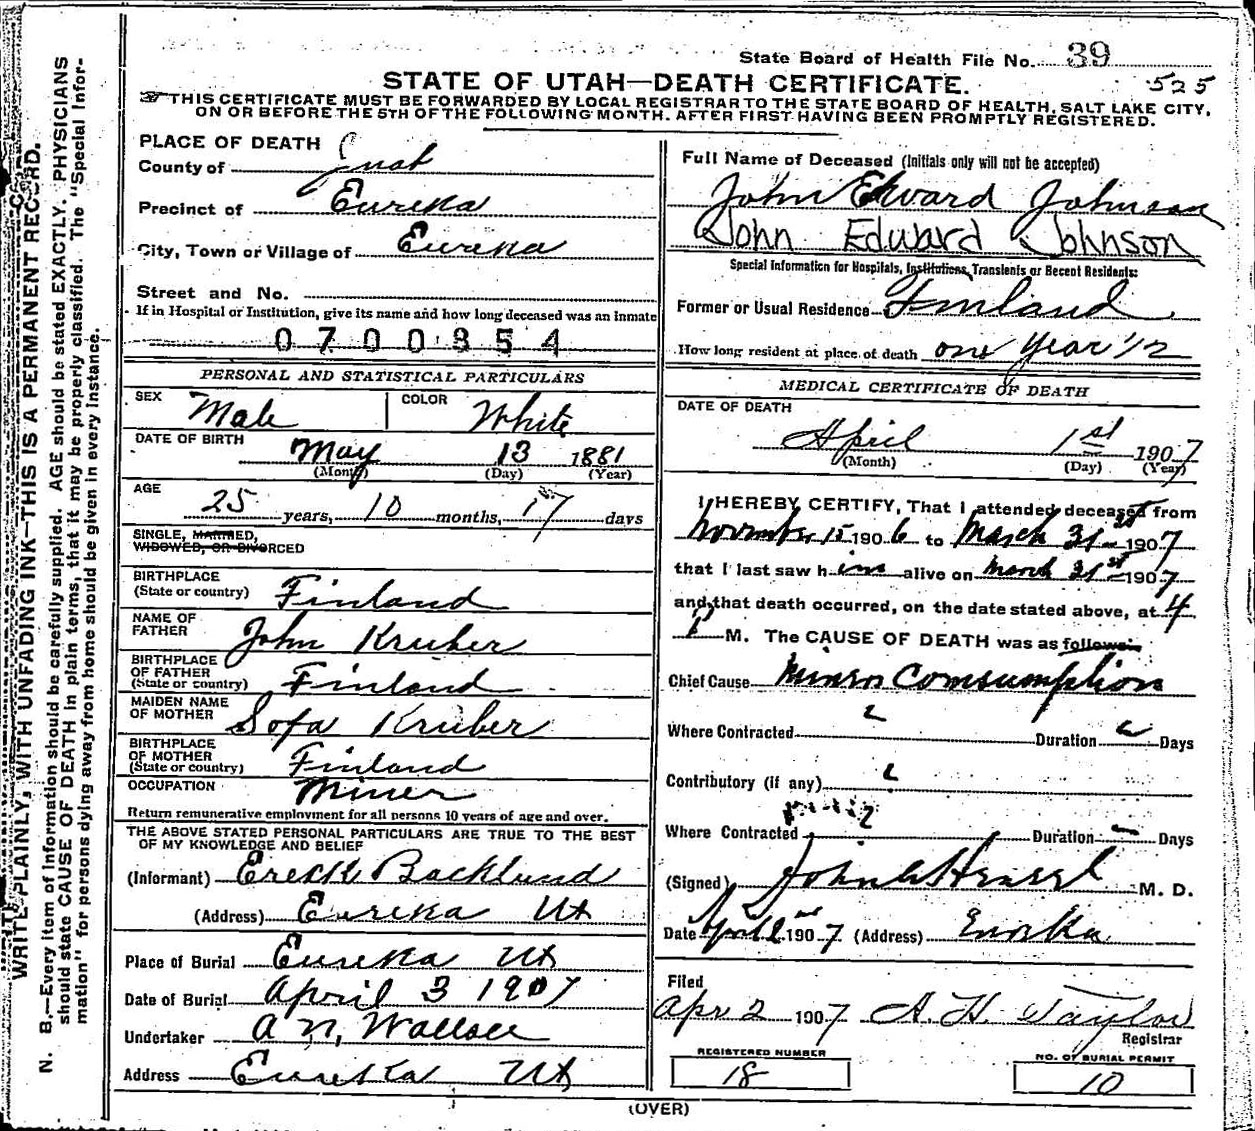 State Board of Health File No. 39
525
STATE OF UTAH—DEATH CERTIFICATE.
THIS CERTIFICATE MUST BE FORWARDED BY LOCAL REGISTRAR TO THE STATE BOARD OF HEALTH, SALT LAKE CITY,
ON OR BEFORE THE 5TH OF THE FOLLOWING MONTH. AFTER FIRST HAVING BEEN PROMPTLY REGISTERED.
WRITE PLAINLY, WITH UNFADING INK—THIS IS A PERMANENT RECORD.
N. B.—Every item of information should be carefully supplied. AGE should be stated EXACTLY. PHYSICIANS
should state CAUSE OF DEATH in plain terms, that it may be properly classified. The "Special Infor-
mation" for persons dying away from home should be given in every instance.
PLACE OF DEATH
County of Juab
Precinct of Eureka
City, Town or Village of Eureka
Street and No.
If in Hospital or Institution, give its name and how long deceased was an inmate
0700354
PERSONAL AND STATISTICAL PARTICULARS
SEX Male COLOR White
DATE OF BIRTH May 13 1881
(Month) (Day) (Year)
AGE 25 years, 10 months, 17 days
SINGLE, MARRIED,
WIDOWED, OR DIVORCED
BIRTHPLACE
(State or country) Finland
NAME OF
FATHER John Kruber
BIRTHPLACE
OF FATHER
(State or country) Finland
MAIDEN NAME
OF MOTHER Sofa Kruber
BIRTHPLACE
OF MOTHER
(State or country) Finland
OCCUPATION Miner
Return remunerative employment for all persons 10 years of age and over.
THE ABOVE STATED PERSONAL PARTICULARS ARE TRUE TO THE BEST
OF MY KNOWLEDGE AND BELIEF
(Informant) Erick Backlund
(Address) Eureka Ut
Place of Burial Eureka Ut
Date of Burial April 3 1907
Undertaker A N, Wallace
Address Eureka Ut
Full Name of Deceased (Initials only will not be accepted)
John Edward Johnson
John Edward Johnson
Special Information for Hospitals, Institutions, Transients or Recent Residents:
Former or Usual Residence Finland
How long resident at place of death one Year 1/2
MEDICAL CERTIFICATE OF DEATH
DATE OF DEATH
April 1st 1907
(Month) (Day) (Year)
I HEREBY CERTIFY, That I attended deceased from
November 15 1906 to March 31st 1907
that I last saw him alive on March 31st 1907
and that death occurred, on the date stated above, at 4
M. The CAUSE OF DEATH was as follows:
Chief Cause Miners Comsumption
Where Contracted ? Duration Days
Contributory (if any) ?
Where Contracted ? Duration Days
(Signed) M. D.
Date April 2nd 1907 (Address) Eureka
Filed
Apr 2 1907 A. H. Taylor
Registrar
REGISTERED NUMBER
18
NO. OF BURIAL PERMIT
10
(OVER)